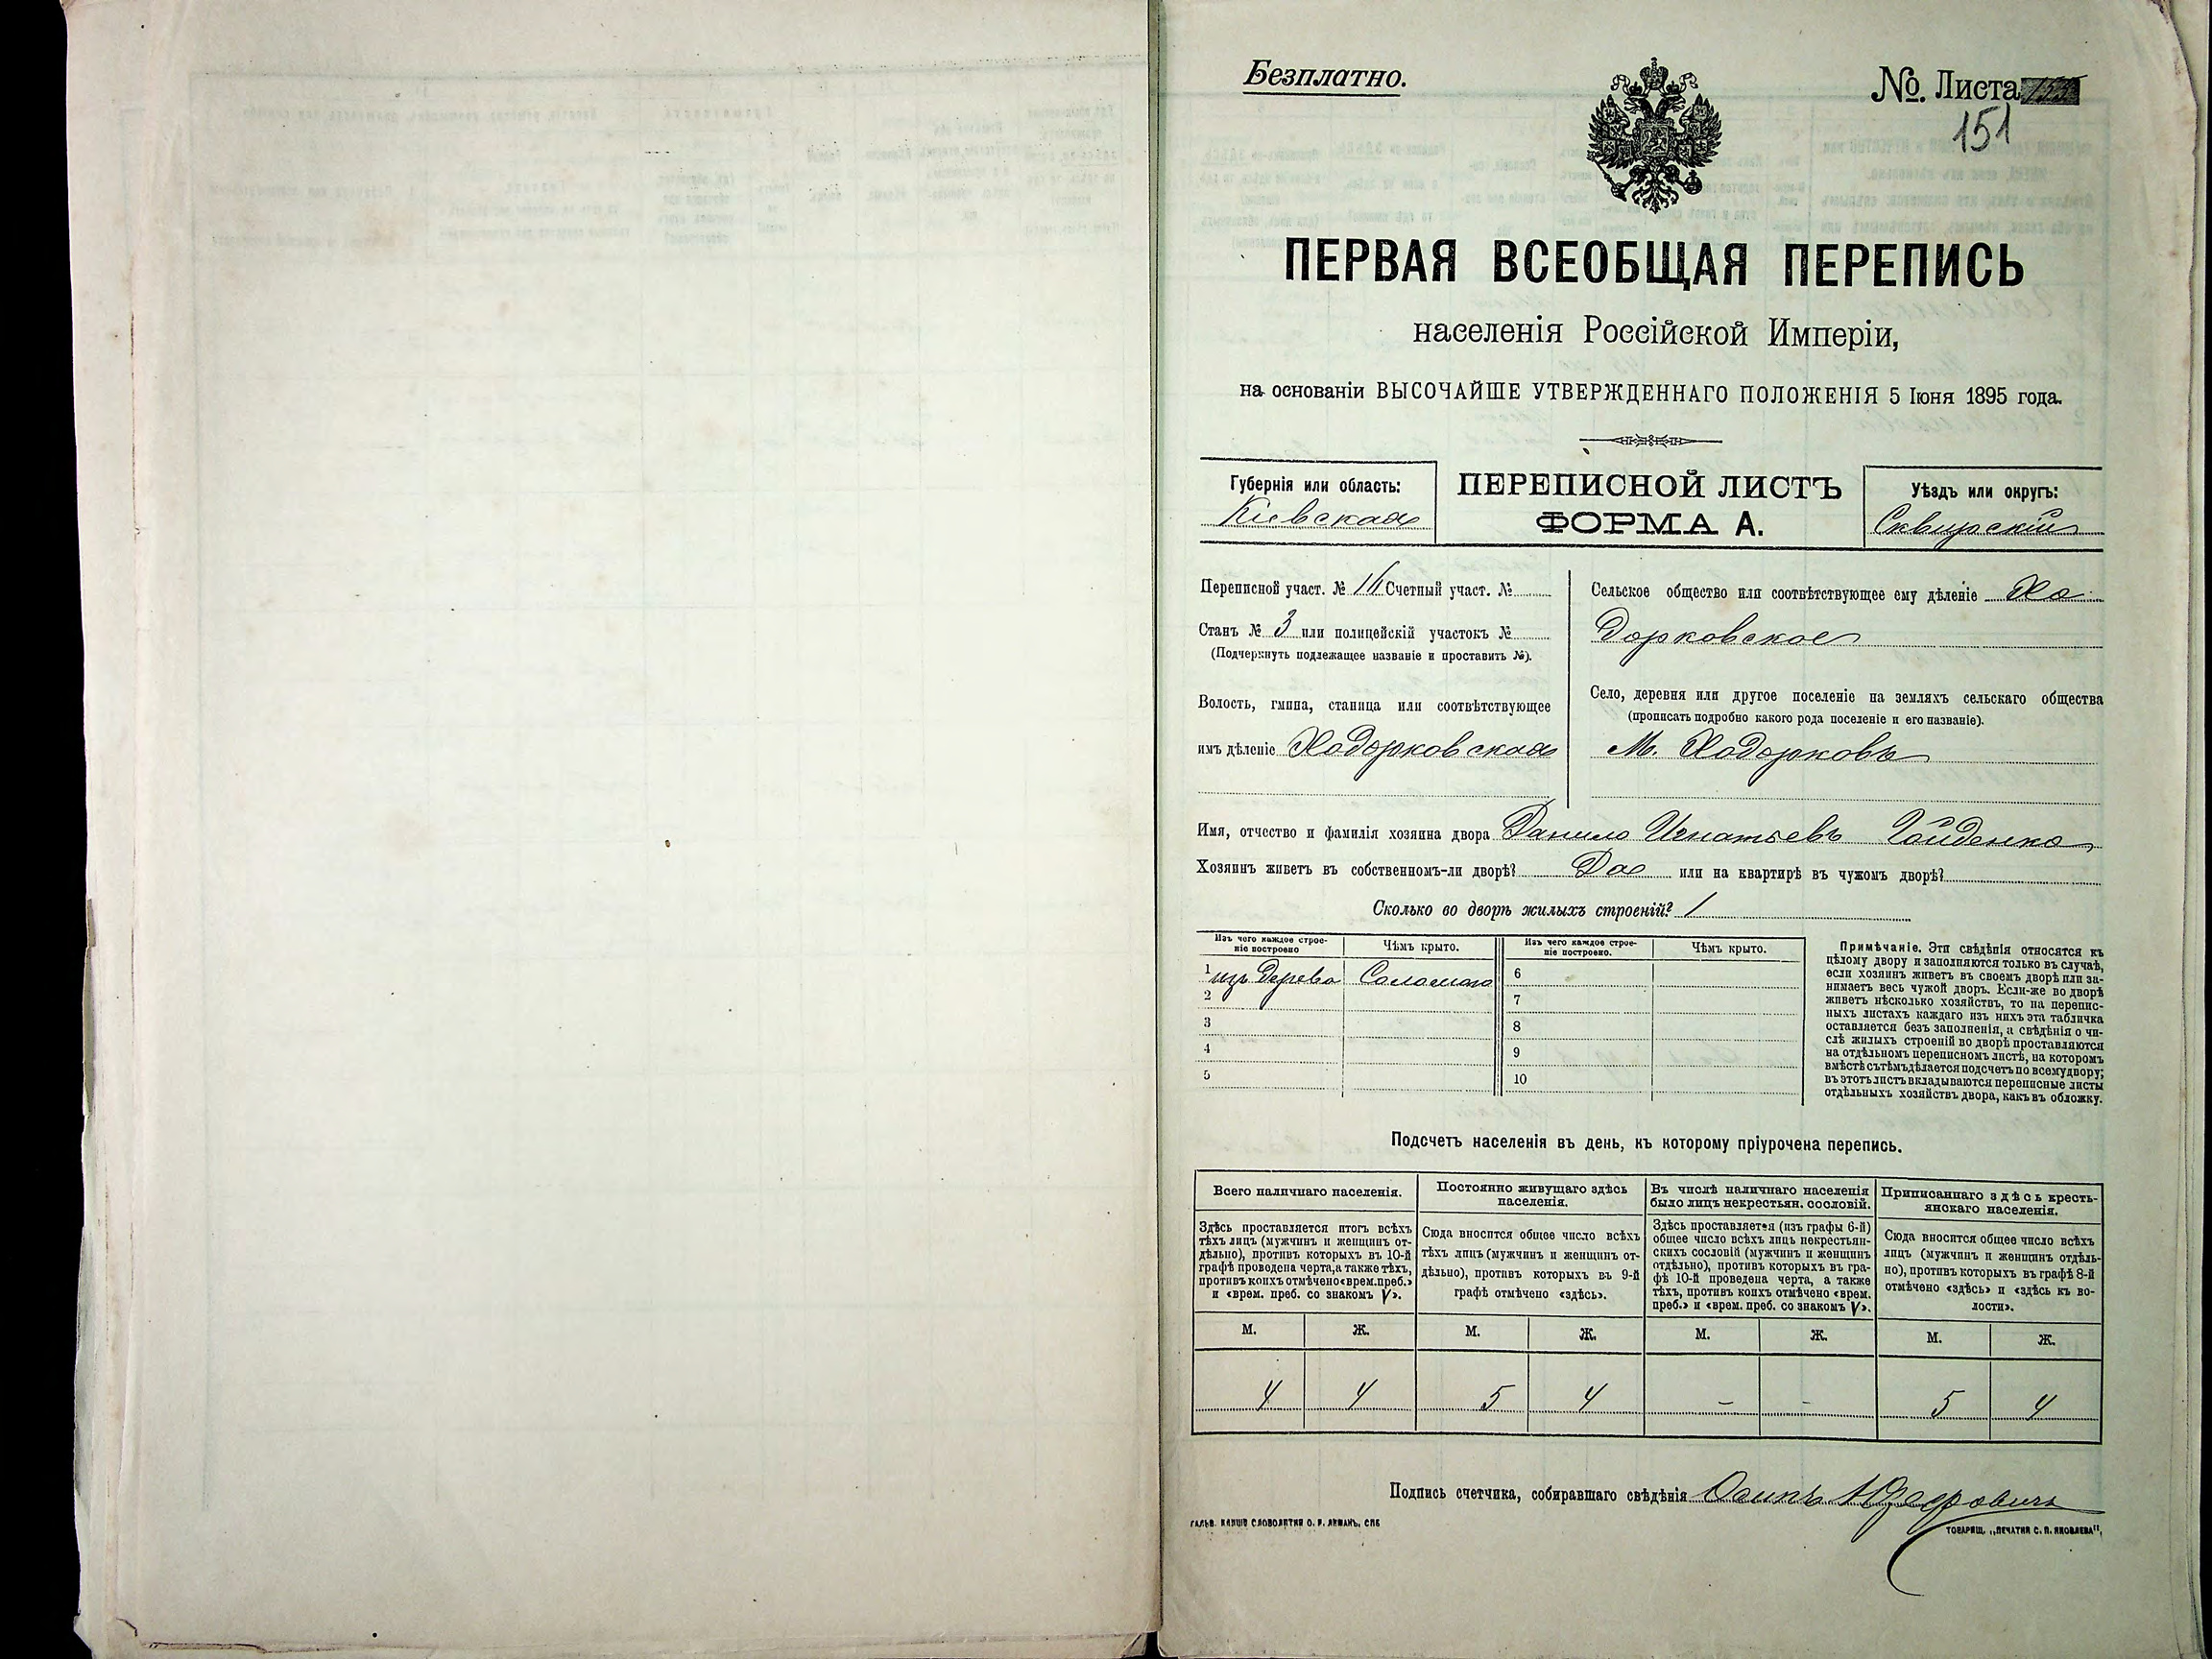 Безплатно.
№. Листа
151
ПЕРВАЯ ВСЕОБЩАЯ ПЕРЕПИСЬ
населенія Россійской Имперіи,
на основаніи ВЫСОЧАЙШЕ УТВЕРЖДЕННАГО ПОЛОЖЕНІЯ 5 Іюня 1895 года.
Губернія или область:
Кіевская
ПЕРЕПИСНОЙ ЛИСТЪ
ФОРМА А.
Уѣздъ или округъ:
Сквирскій
Переписной участ. № 16 Счетный участ. №
Станъ № 3 или полицейскій участокъ №
(Подчеркнуть подлежащее названіе и проставить №).
Волость, гмина, станица или соотвѣтствующее
имъ дѣленіе Ходорковская
Сельское общество или соотвѣтствующее ему дѣленіе Хо
дорковское
Село, деревня или другое поселеніе на земляхъ сельскаго общества
(прописать подробно какого рода поселеніе и его названіе).
М. Ходорковъ
Имя, отчество и фамилія хозяина двора Данило Игнатьевъ Гайденко
Хозяинъ живетъ въ собственномъ-ли дворѣ? Да или на квартирѣ въ чужомъ дворѣ?
Сколько во дворѣ жилыхъ строеній? 1
Изъ чего каждое строе-
ніе построено
Чѣмъ крыто.
Изъ чего каждое строе-
ніе построено.
Чѣмъ крыто.
1 изъ дерева Соломою 6
2 7
3 8
4 9
5 10
Примѣчаніе. Эти свѣдѣнія относятся къ
цѣлому двору и заполняются только въ случаѣ,
если хозяинъ живетъ въ своемъ дворѣ или за-
нимаетъ весь чужой дворъ. Если-же во дворѣ
живетъ нѣсколько хозяйствъ, то на перепис-
ныхъ листахъ каждаго изъ нихъ эта табличка
оставляется безъ заполненія, а свѣдѣнія о чи-
слѣ жилыхъ строеній во дворѣ проставляются
на отдѣльномъ переписномъ листѣ, на которомъ
вмѣстѣ съ тѣмъ дѣлается подсчетъ по всему двору;
въ этотъ листъ вкладываются переписные листы
отдѣльныхъ хозяйствъ двора, какъ въ обложку.
Подсчетъ населенія въ день, къ которому пріурочена перепись.
Всего наличнаго населенія.
Здѣсь проставляется итогъ всѣхъ
тѣхъ лицъ (мужчинъ и женщинъ от-
дѣльно), противъ которыхъ въ 10-й
графѣ проведена черта, а также тѣхъ,
противъ коихъ отмѣчено «врем. преб.»
и «врем. преб. со знакомъ V».
Постоянно живущаго здѣсь
населенія.
Сюда вносится общее число всѣхъ
тѣхъ лицъ (мужчинъ и женщинъ от-
дѣльно), противъ которыхъ въ 9-й
графѣ отмѣчено «здѣсь».
Въ числѣ наличнаго населенія
было лицъ некрестьян. сословій.
Здѣсь проставляется (изъ графы 6-й)
общее число всѣхъ лицъ некрестьян-
скихъ сословій (мужчинъ и женщинъ
отдѣльно), противъ которыхъ въ гра-
фѣ 10-й проведена черта, а также
тѣхъ, противъ коихъ отмѣчено «врем.
преб.» и «врем. преб. со знакомъ V».
Приписаннаго здѣсь кресть-
янскаго населенія.
Сюда вносится общее число всѣхъ
лицъ (мужчинъ и женщинъ отдѣль-
но), противъ которыхъ въ графѣ 8-й
отмѣчено «здѣсь» и «здѣсь къ во-
лости».
М. Ж. М. Ж. М. Ж. М. Ж.
4 4 5 4 - - 5 4
Подпись счетчика, собиравшаго свѣдѣнія Осипъ
ГАЛЬВ. КЛИШЕ СЛОВОЛИТНИ О. И. ЛЕМАНЪ, СПБ
ТОВАРИЩ. „ПЕЧАТНЯ С. П. ЯКОВЛЕВА“.